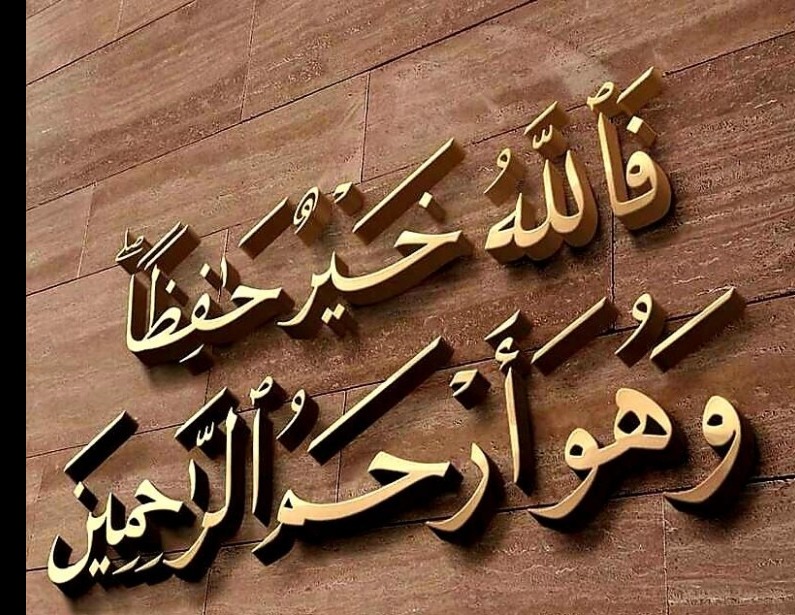 فَٱللَّهُ خَيْرٌ حَٰفِظًاۖ
وَهُوَ أَرْحَمُ ٱلرَّٰحِمِينَ